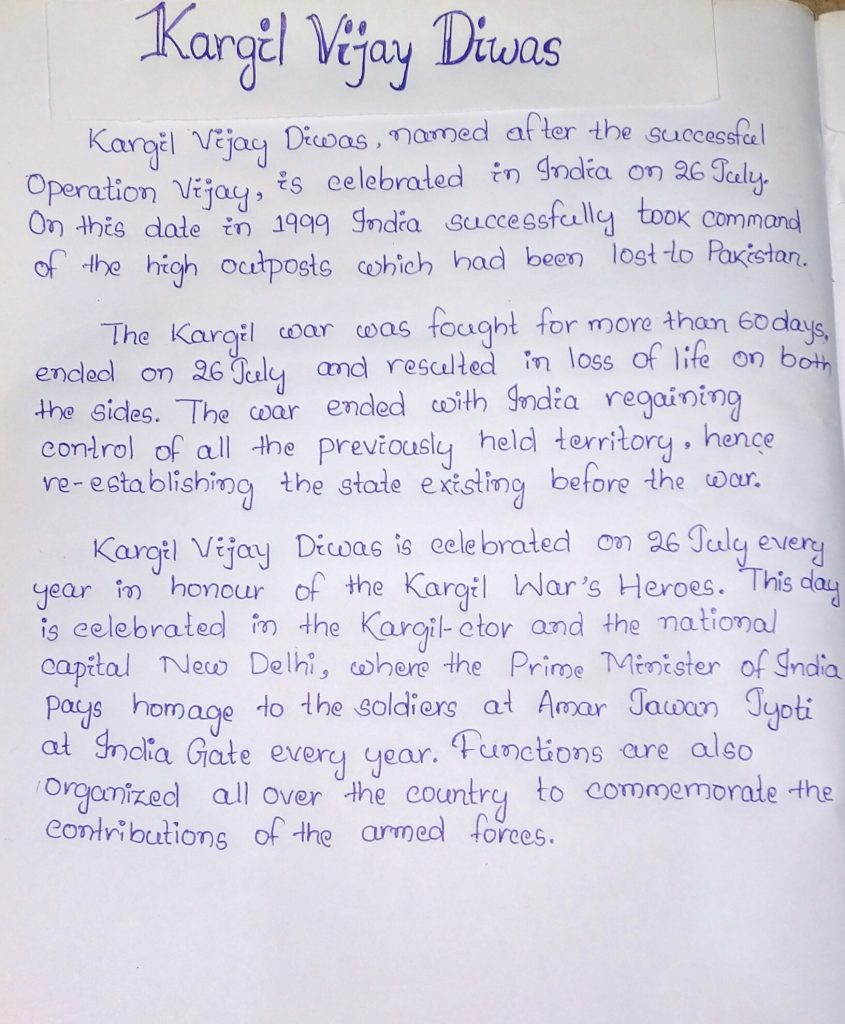 Kargil Vijay Diwas
Kargil Vijay Diwas, named after the successful
Operation Vijay, is celebrated in India on 26 July.
On this date in 1999 India successfully took command
of the high outposts which had been lost to Pakistan.
The Kargil war was fought for more than 60 days,
ended on 26 July and resulted in loss of life on both
the sides. The war ended with India regaining
control of all the previously held territory, hence
re-establishing the state existing before the war.
Kargil Vijay Diwas is celebrated on 26 July every
year in honour of the Kargil War's Heroes. This day
is celebrated in the Kargil-ctor and the national
capital New Delhi, where the Prime Minister of India
pays homage to the soldiers at Amar Jawan Jyoti
at India Gate every year. Functions are also
organized all over the country to commemorate the
contributions of the armed forces.